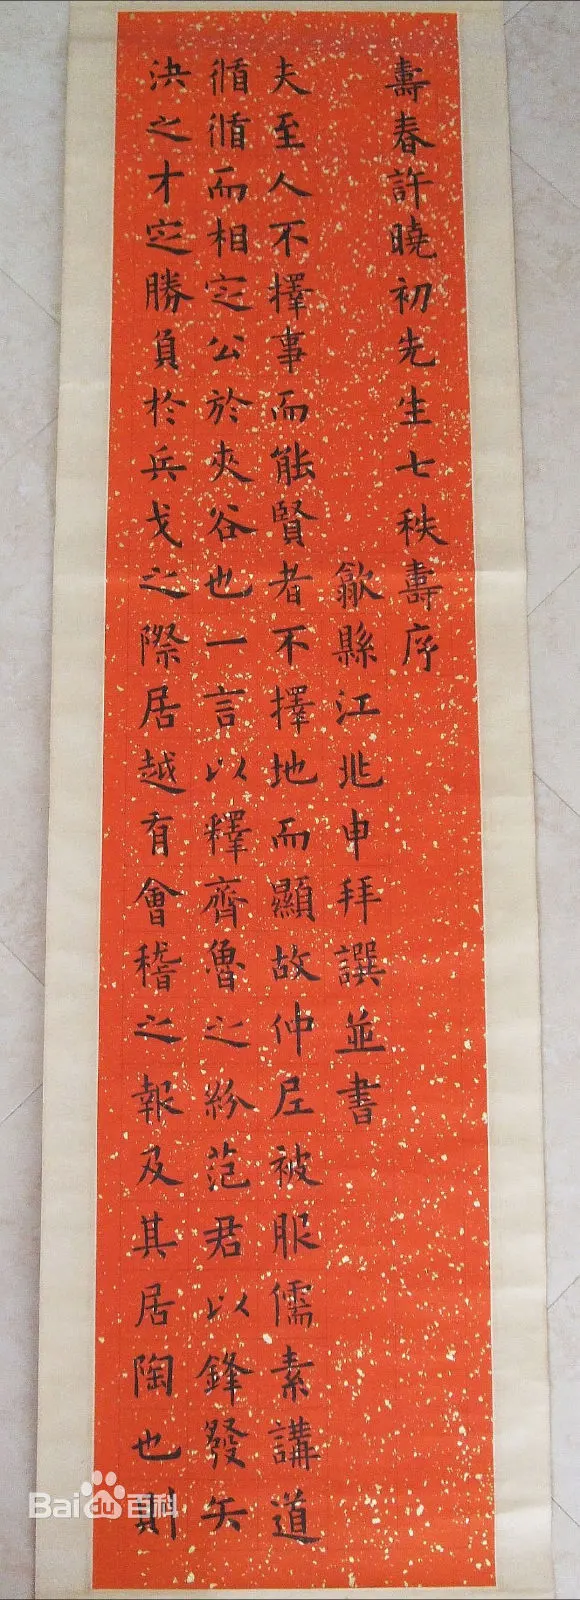 壽春許曉初先生七秩壽序
歙縣江兆申拜譔並書
夫至人不擇事而能賢者不擇地而顯故仲尼被服儒素講道
循循而相定公於夾谷也一言以釋齊魯之紛范君以鋒發矢
決之才定勝負於兵戈之際居越有會稽之報及其居陶也則
Baidu百科